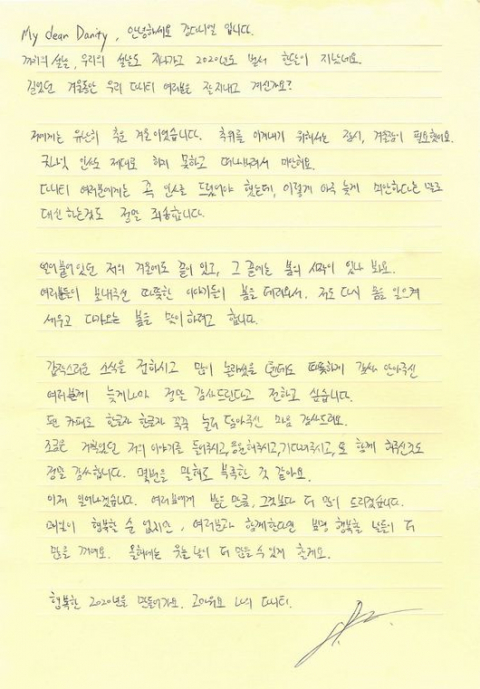 My dear Danity, 안녕하세요 강다니엘 입니다.
까치의 설날, 우리의 설날도 지나가고 2020년도 벌써 한달이 지났네요.
길었던 겨울동안 우리 다니티 여러분은 잘 지내고 계신가요?
저에게는 유난히 추운 겨울이었습니다. 추위를 이겨내기 위해서는 잠시, 겨울잠이 필요했어요.
그래서 인사도 제대로 하지 못하고 떠나버려서 미안해요.
다니티 여러분에게는 꼭 인사를 드렸어야 했는데, 이렇게 아주 늦게 미안하다는 말로
대신 하는것도 정말 죄송합니다.
얼어붙어 있던 저의 겨울에도 끝이 있고, 그 끝에는 봄의 시작이 있나 봐요.
여러분들이 보내주신 따뜻한 이야기들이 봄을 데려와서 저도 다시 몸을 일으켜
세우고 다가오는 봄을 맞이하려고 합니다.
갑작스러운 소식을 접하시고 많이 놀라셨을 텐데도 따뜻하게 감싸 안아주신
여러분께 늦게나마 정말 감사드린다고 전하고 싶습니다.
팬 카페로 한글자 한글자 꾹꾹 눌러 담아주신 마음 감사드려요.
조금은 거칠었던 저의 이야기를 들어주시고, 응원해주시고, 기다려주시고, 또 함께 해주신것도
정말 감사합니다. 몇번을 말해도 부족한 것 같아요.
이제 일어나겠습니다. 여러분에게 받은 만큼, 그것보다 더 많이 드리겠습니다.
매일이 행복할 순 없지만, 여러분과 함께한다면 분명 행복한 날들이 더
많을 거예요. 올해에는 웃는 날이 더 많을 수 있게 할게요.
행복한 2020년을 만들어가요. 고마워요 나의 다니티.